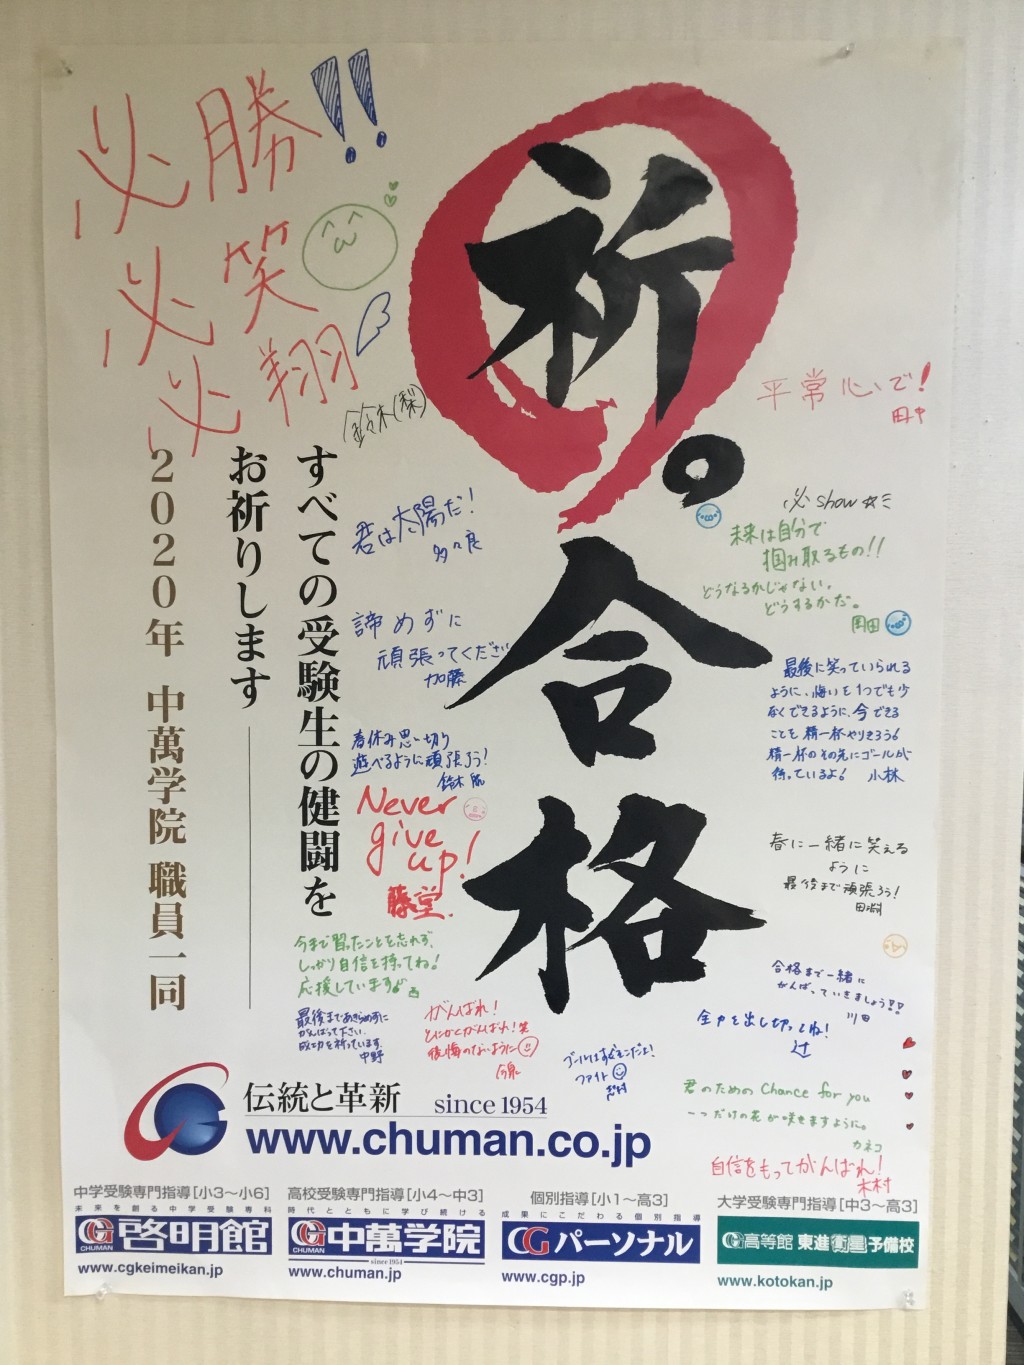 必勝!!
必笑
必翔
鈴木(梨)
祈。合格
すべての受験生の健闘を
お祈りします
2020年 中萬学院 職員一同
平常心で!
田中
必show☆ミ
未来は自分で
掴み取るもの!!
どうなるかじゃない。
どうするかだ。
岡田
君は太陽だ!
多々良
諦めずに
頑張ってください
加藤
最後に笑っていられる
ように、悔いを1つでも少
なくできるように、今できる
ことを精一杯やりきろう!
精一杯のその先にゴールが
待っているよ!小林
春休み思い切り
遊べるように頑張ろう!
鈴木
Never
give
up!
藤堂
春に一緒に笑える
ように
最後まで頑張ろう!
田淵
今まで習ったことを忘れず、
しっかり自信を持ってね!
応援しています
合格まで一緒に
がんばっていきましょう!!
川田
最後まであきらめずに
がんばって下さい。
成功を祈っています。
中野
がんばれ!
とにかくがんばれ!笑
後悔のないように
今泉
ゴールはすぐそこだよ!
ファイト
志村
全力を出し切ってね!
辻
君のための Chance for you
一つだけの花が咲きますように。
カネコ
自信をもってがんばれ!
木村
伝統と革新 since 1954
www.chuman.co.jp
中学受験専門指導[小3～小6]
未来を創る中学受験専科
CG CHUMAN 啓明館
www.cgkeimeikan.jp
高校受験専門指導[小4～中3]
時代とともに学び続ける
CG CHUMAN 中萬学院
since 1954
www.chuman.jp
個別指導[小1～高3]
成果にこだわる個別指導
CG パーソナル
www.cgp.jp
大学受験専門指導[中3～高3]
CG 高等館 東進衛星予備校
www.kotokan.jp